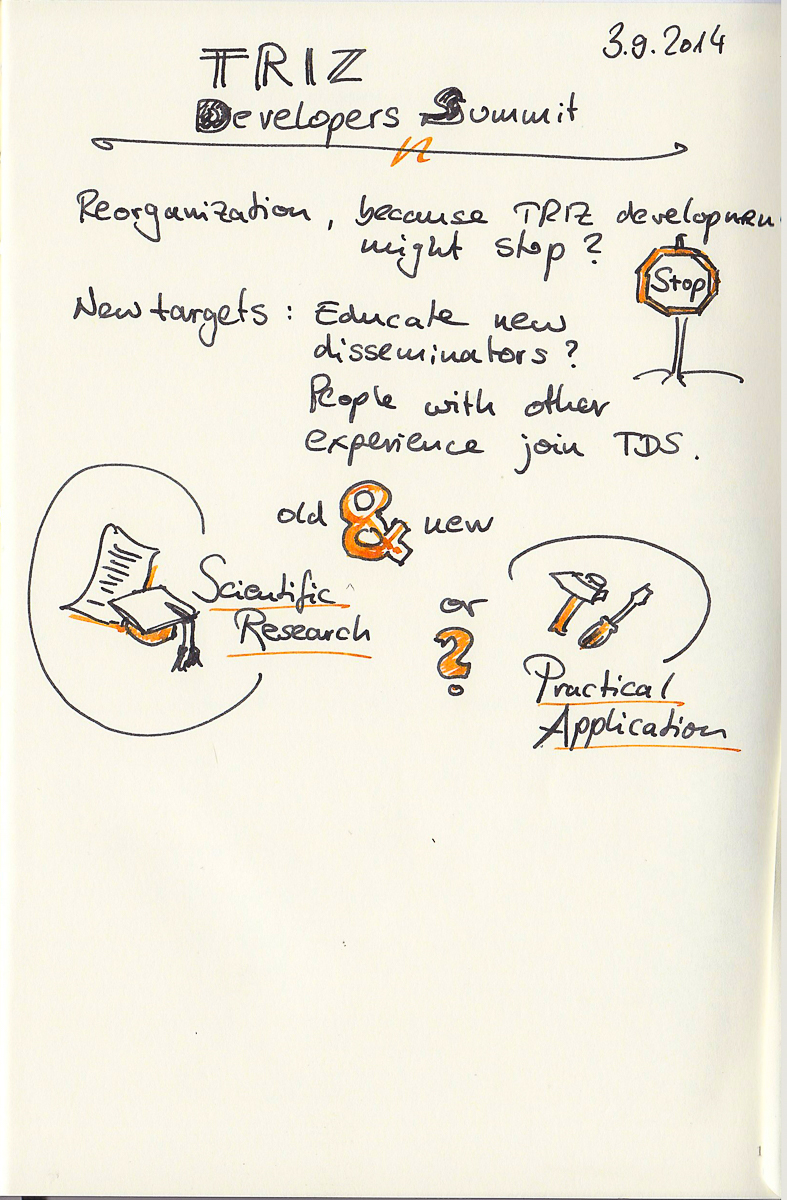 3.9.2014
TRIZ
Developers Summit
Reorganization, because TRIZ developmen
might stop?
Stop
New targets: Educate new
disseminators?
People with other
experience join TDS.
old & new
Scientific
Research
or
?
Practical
Application
1